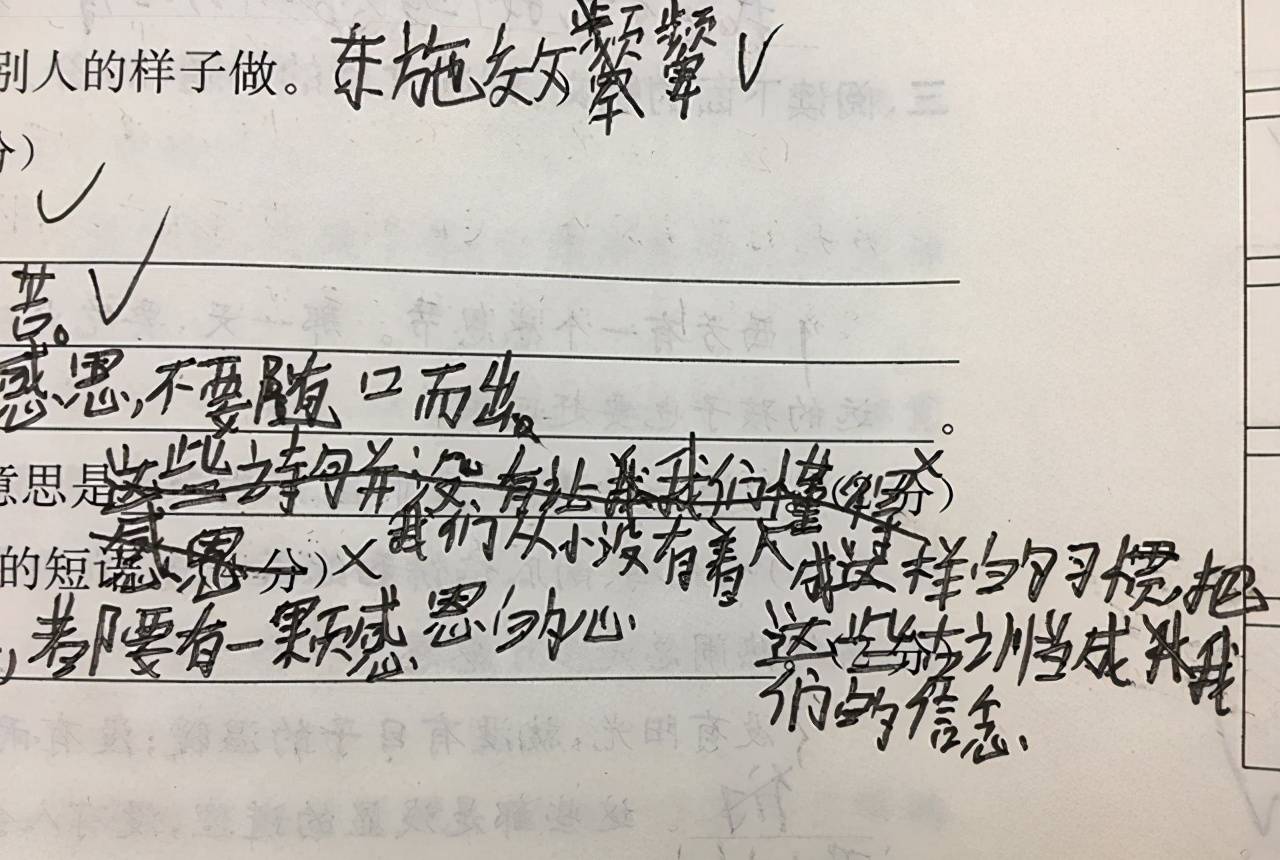 别人的样子做。东施效颦
分)
苦。
感恩,不要随口而出。
意思是这些诗句并没有让我我们懂(2分)
感恩
的短语 分)
我们从小没有养成这样的习惯,把
,都要有一颗感恩的心.
这些 训当成我
们的信念.